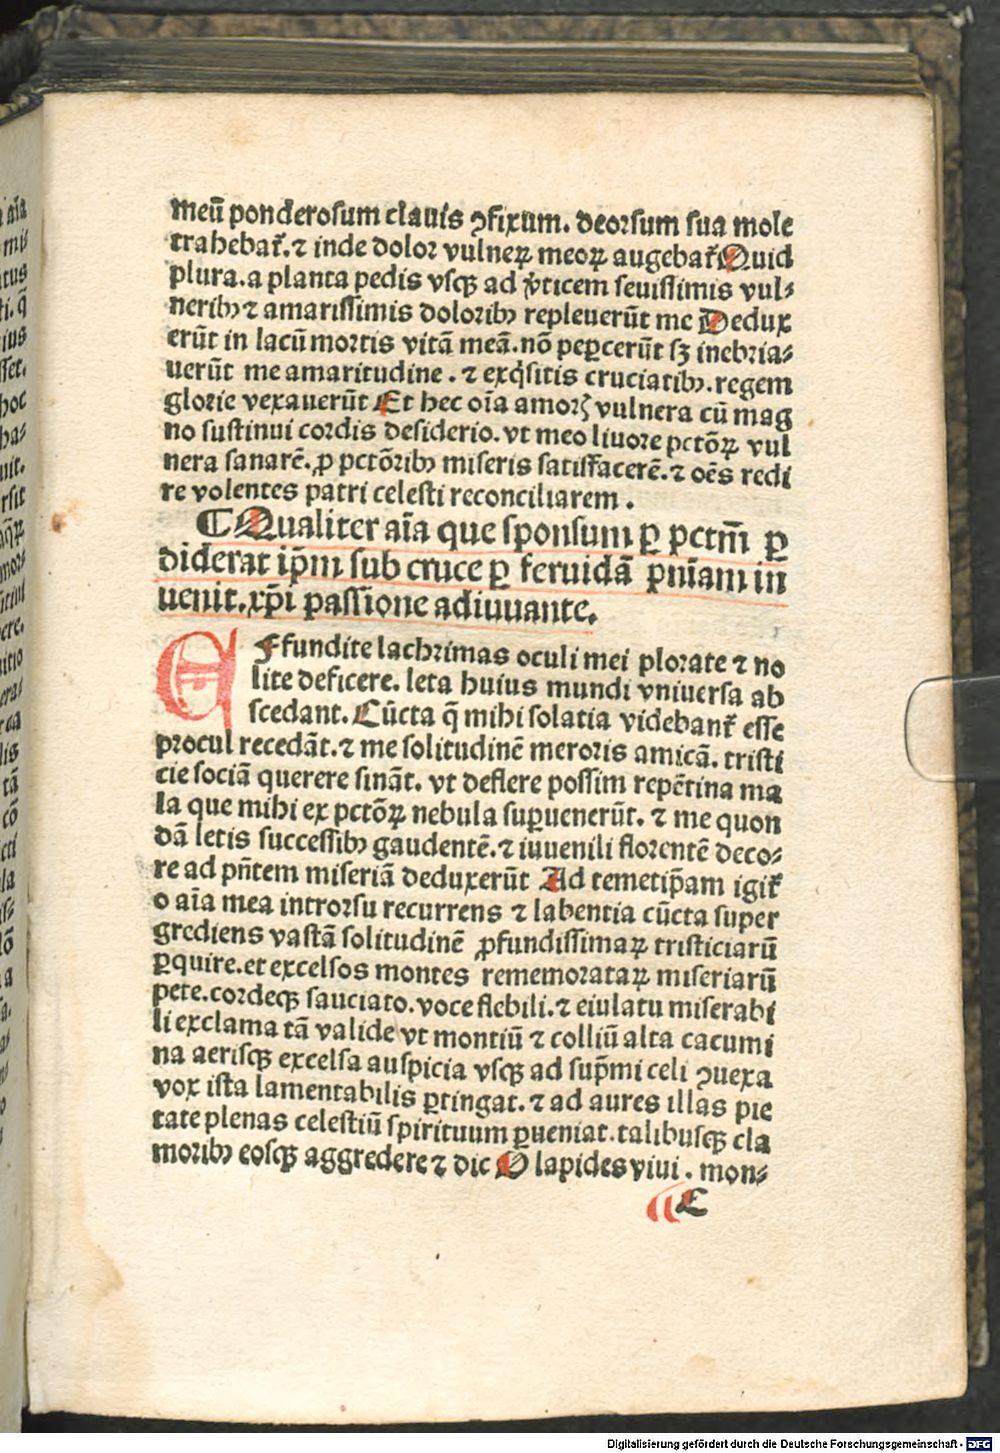 meū ponderosum clauis ꝯfixum. deorsum sua mole
trahebat᷑. ⁊ inde dolor vulneꝝ meoꝝ augebat᷑ Quid
plura. a planta pedis vsqꝫ ad v̓ticem seuissimis vul⸗
neribꝰ ⁊ amarissimis doloribꝰ repleuerūt me Dedux
erūt in lacū mortis vitā meā. nō peꝑcerūt sꝫ inebria⸗
uerūt me amaritudine. ⁊ exq̇sitis cruciatibꝰ. regem
glorie vexauerūt Et hec oīa amorꝭ vulnera cū mag
no sustinui cordis desiderio. vt meo liuore pctōꝝ vul
nera sanarē. ꝓ pctōribꝰ miseris satisfacerē. ⁊ oēs redi
re volentes patri celesti reconciliarem.
¶ Qualiter aīa que sponsum ꝑ pctm̄ ꝑ
diderat ip̄m sub cruce ꝑ feruidā pn̄iam in
uenit. xp̄i passione adiuuante.
EFfundite lachrimas oculi mei plorate ⁊ no
lite deficere. leta huius mundi vniuersa ab
scedant. Cūcta q̄ mihi solatia videbant᷑ esse
procul recedāt. ⁊ me solitudinē meroris amicā. tristi
cie sociā querere sināt. vt deflere possim repētina ma
la que mihi ex pctōꝝ nebula suꝑuenerūt. ⁊ me quon
dā letis successibꝰ gaudentē. ⁊ iuuenili florentē deco⸗
re ad pn̄tem miseriā deduxerūt Ad temetip̄am igit᷑
o aīa mea introrsu recurrens ⁊ labentia cūcta super
grediens vastā solitudinē ꝓfundissimaꝝ tristiciarū
ꝑquire. et excelsos montes rememorataꝝ miseriarū
pete. cordeqꝫ sauciato. voce flebili. ⁊ eiulatu miserabi
li exclama tā valide vt montiū ⁊ colliū alta cacumi
na aerisqꝫ excelsa auspicia vsqꝫ ad sup̄mi celi ꝯuexa
vox ista lamentabilis ꝑtingat. ⁊ ad aures illas pie
tate plenas celestiū spirituum ꝑueniat. talibusqꝫ cla
moribꝰ eosqꝫ aggredere ⁊ dic O lapides viui. mon⸗
E
Digitalisierung gefördert durch die Deutsche Forschungsgemeinschaft - DFG